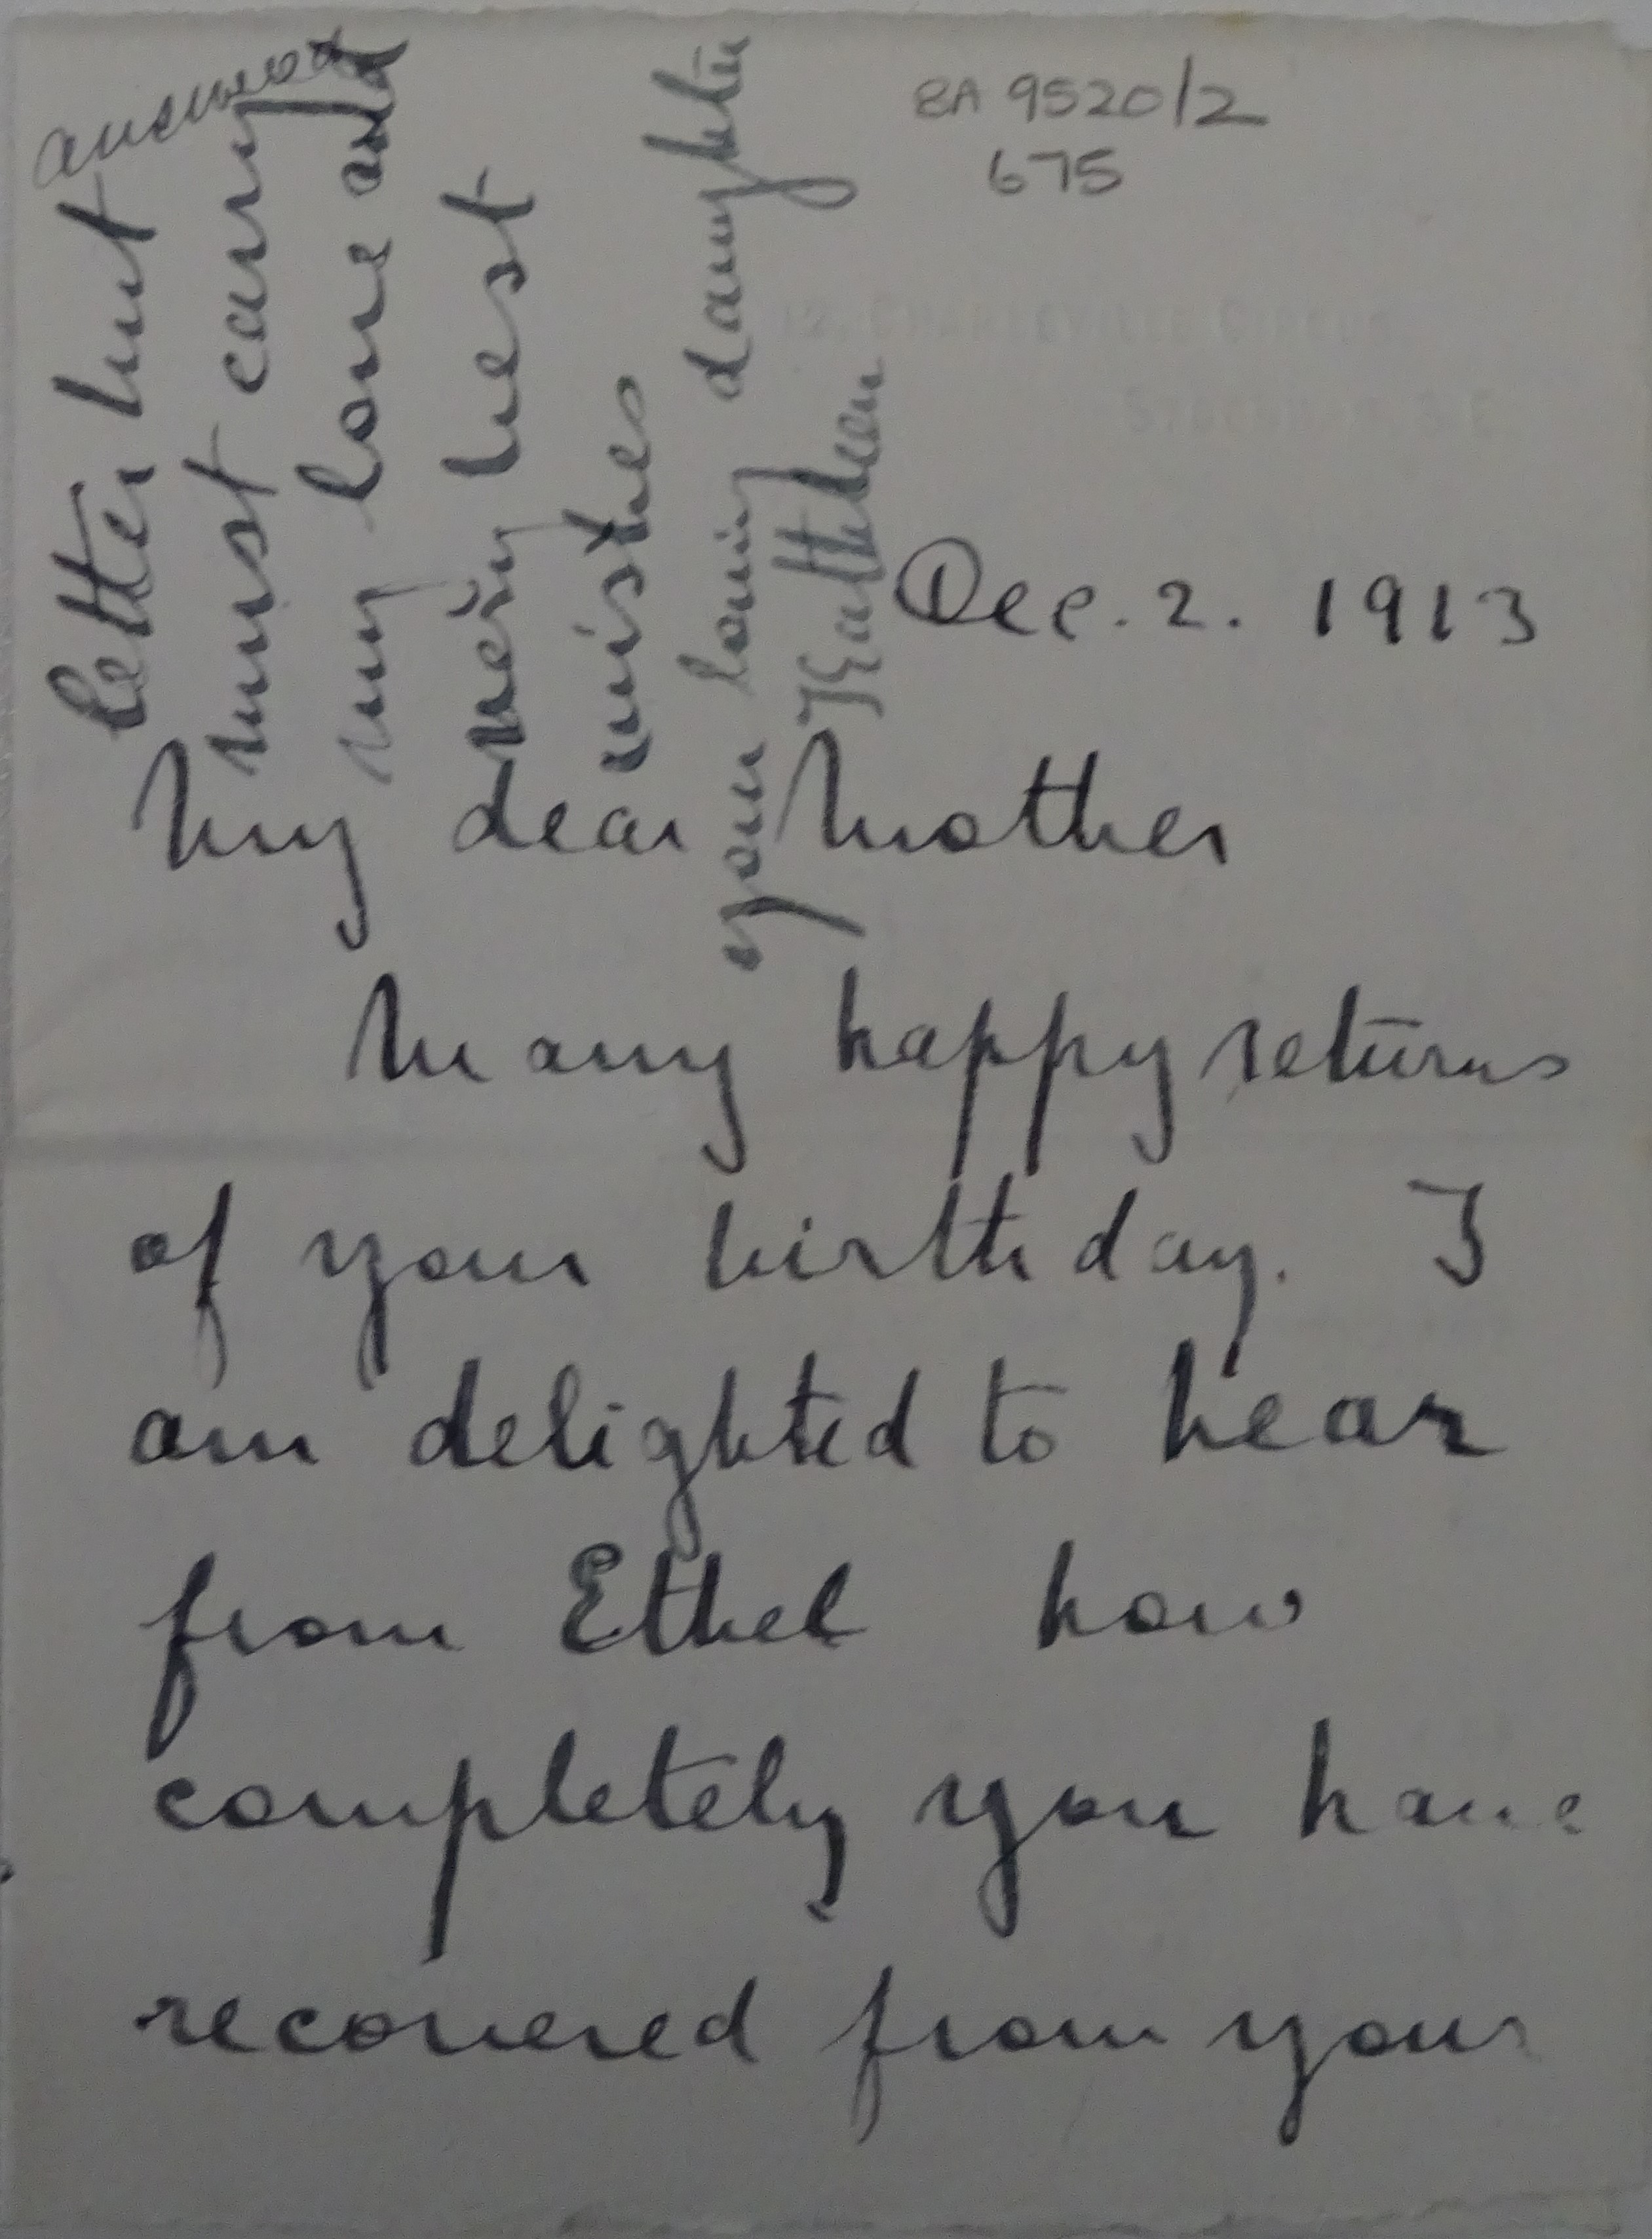 answered
BA 9520/2
675
12, CHARLEVILLE CIRCUS
SYDENHAM. S.E.
Dec. 2. 1913
My dear Mother
Many happy returns
of your birthday. I
am delighted to hear
from Ethel how
completely you have
recovered from your
letter but
must carry
my love and
very best
wishes
your loving daughter
Kathleen